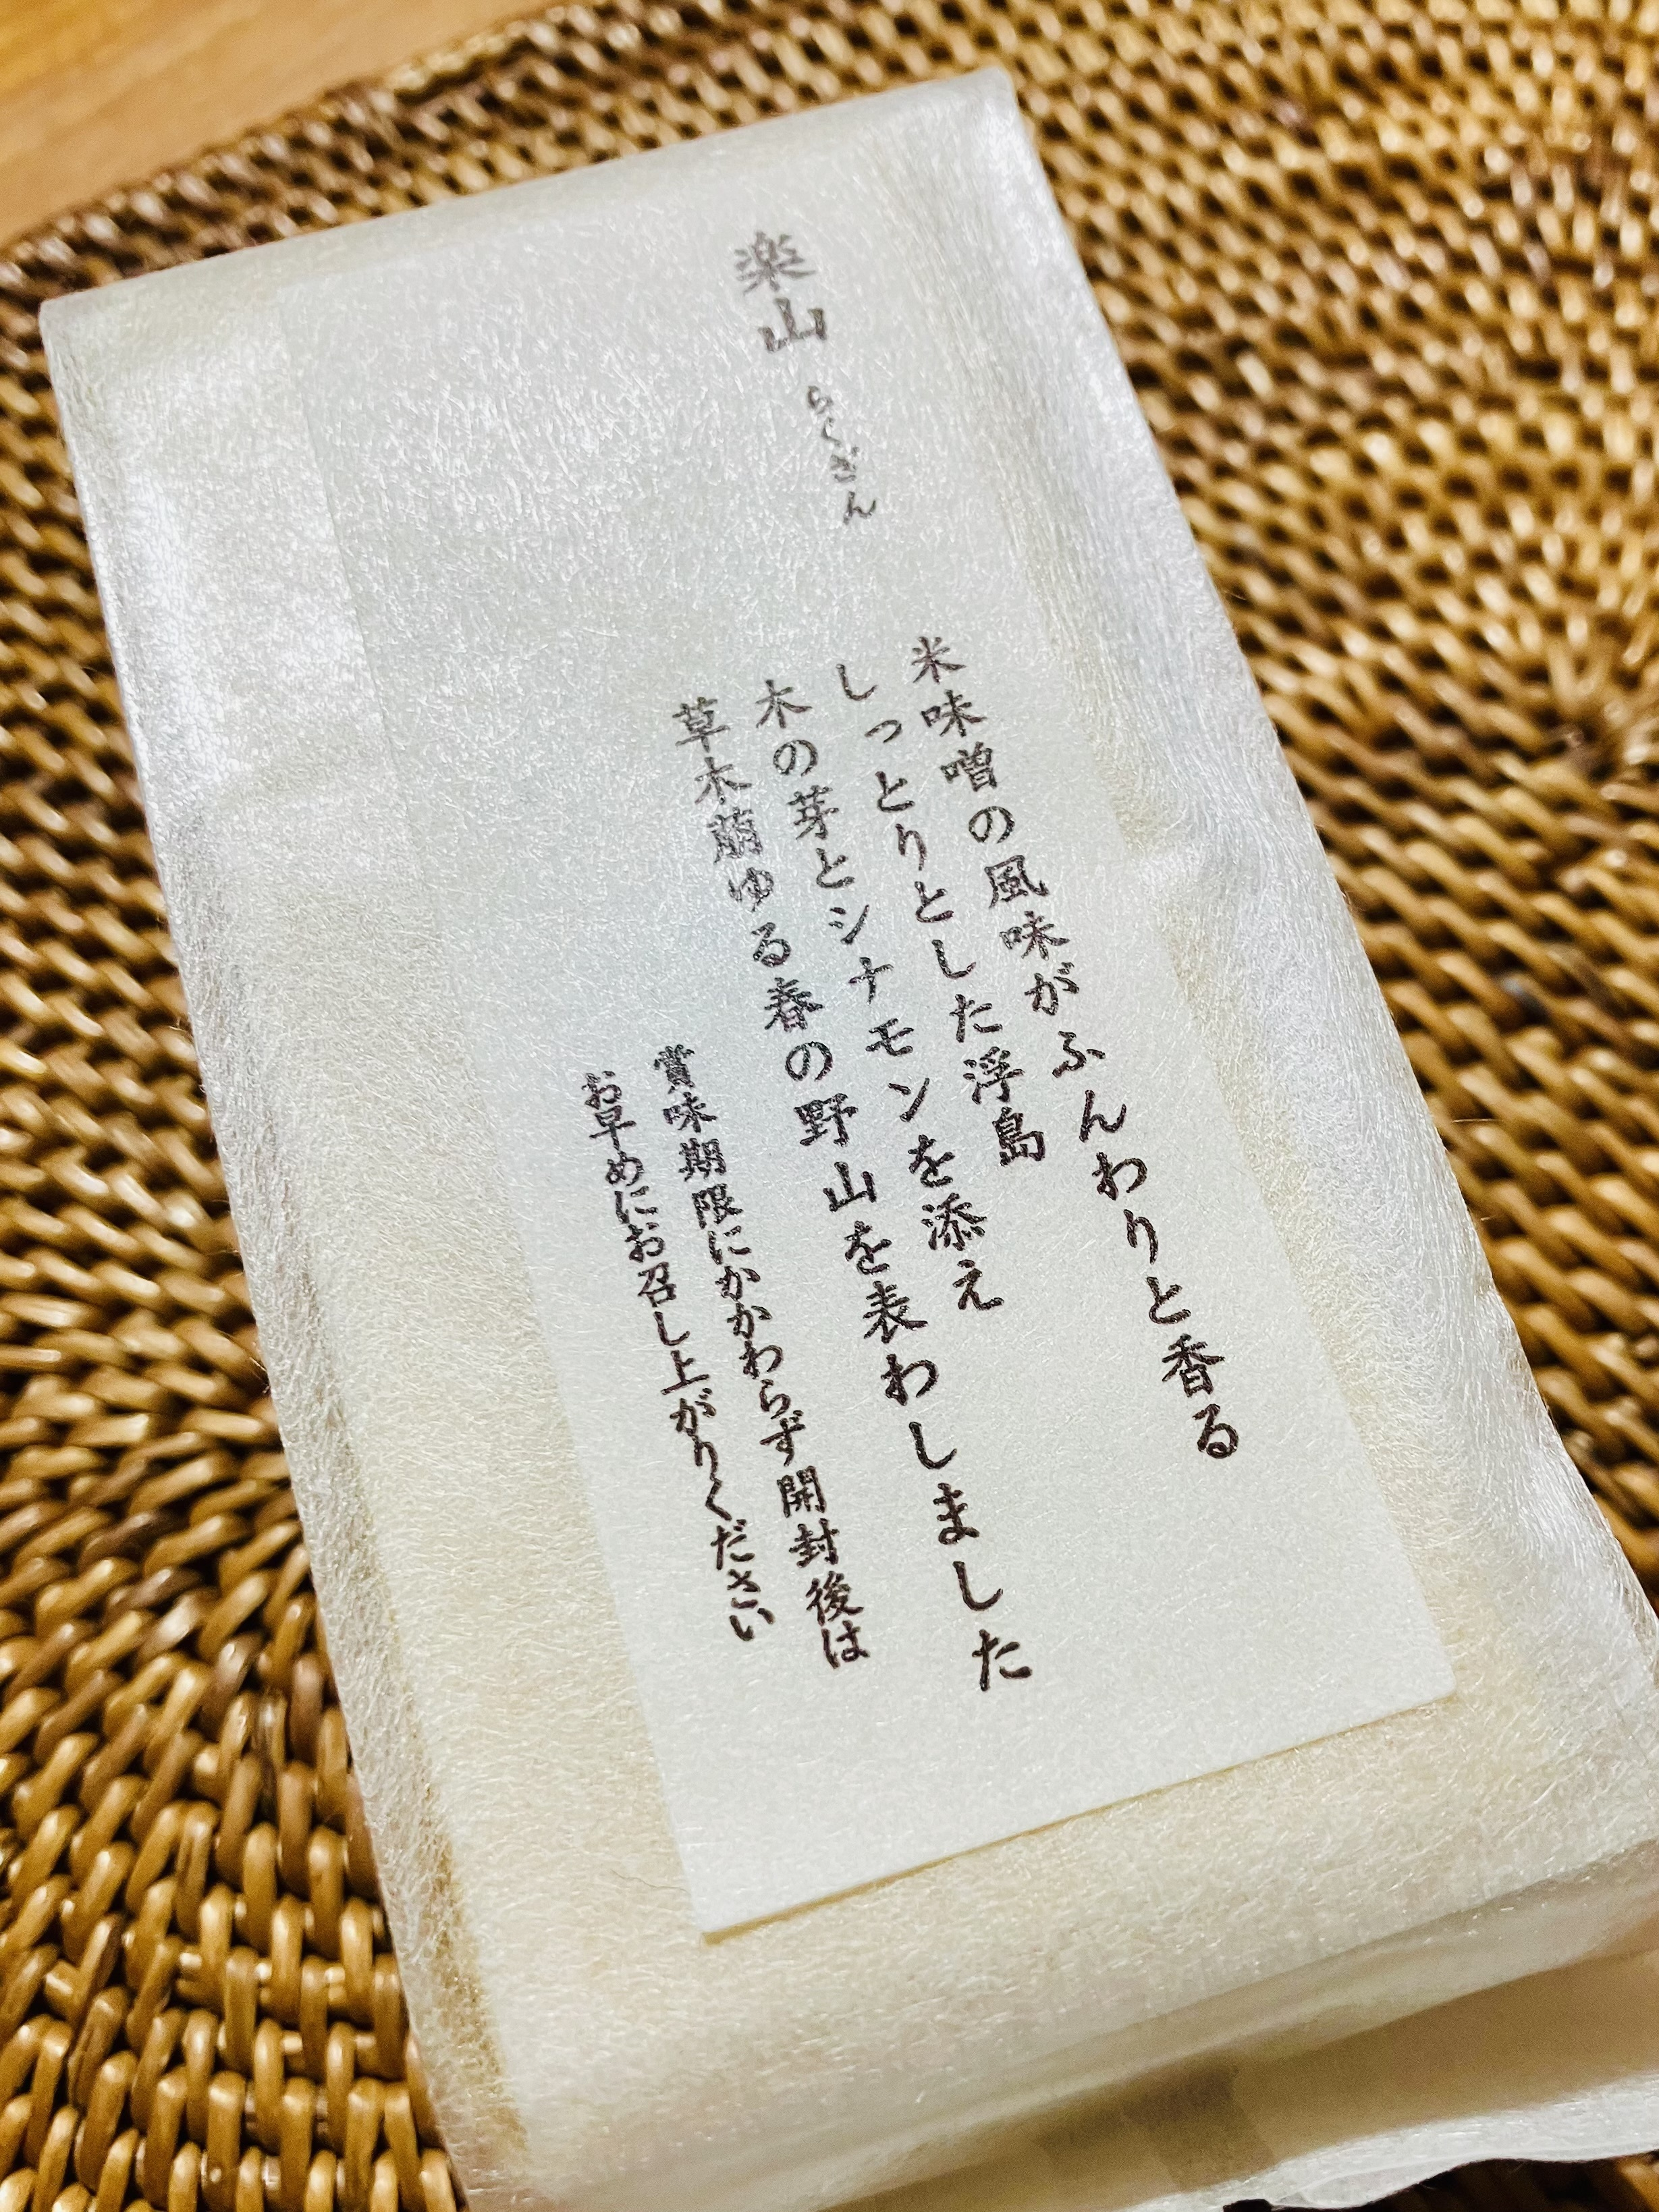 楽山 らくざん
米味噌の風味がふんわりと香る
しっとりとした浮島
木の芽とシナモンを添え
草木萠ゆる春の野山を表わしました
賞味期限にかかわらず開封後は
お早めにお召し上がりください